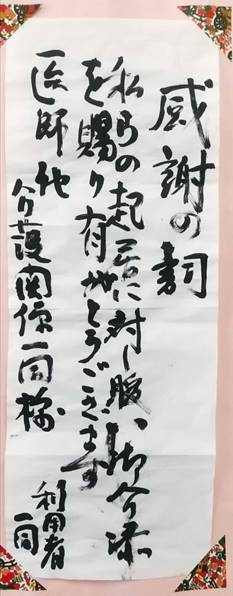 感謝の詞
私らの起居に対し暖い御介添
を賜り有难とうございます
医師他
介護関係一同様
利用者
一同